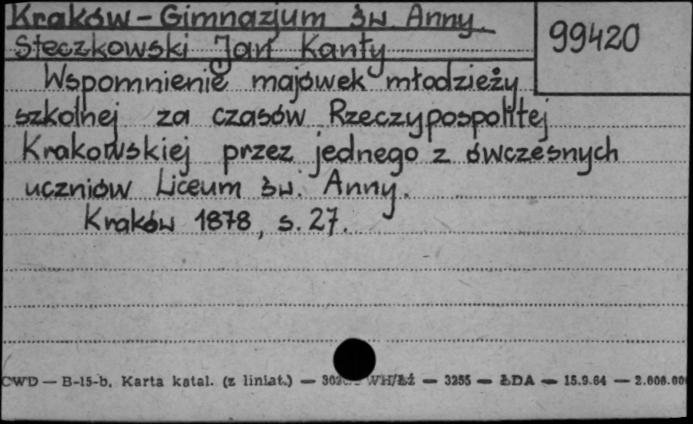 Kraków - Gimnazjum św. Anny.
99420
Steczkowski Jan Kanty
Wspomnienie majówek młodzieży
szkolnej za czasów Rzeczypospolitej
Krakowskiej przez jednego z ówczesnych
uczniów Liceum św. Anny.
Kraków 1878, s. 27.
CWD — B-15-b. Karta katal. (z liniat.) — WH/Łż — 3255 — ŁDA — 15.9.64 —